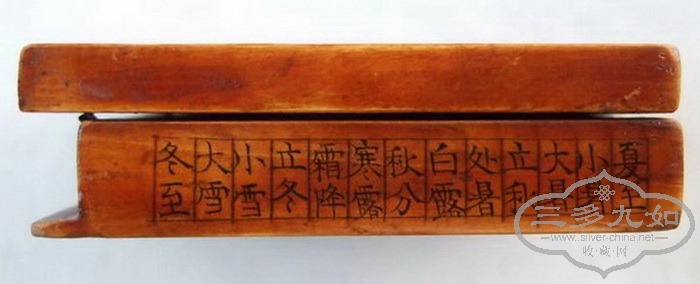 夏至
小
大
立秋
处暑
白露
秋分
寒露
霜降
立冬
小雪
大雪
冬至
三多九如
www.silver-china.net
收·藏·网